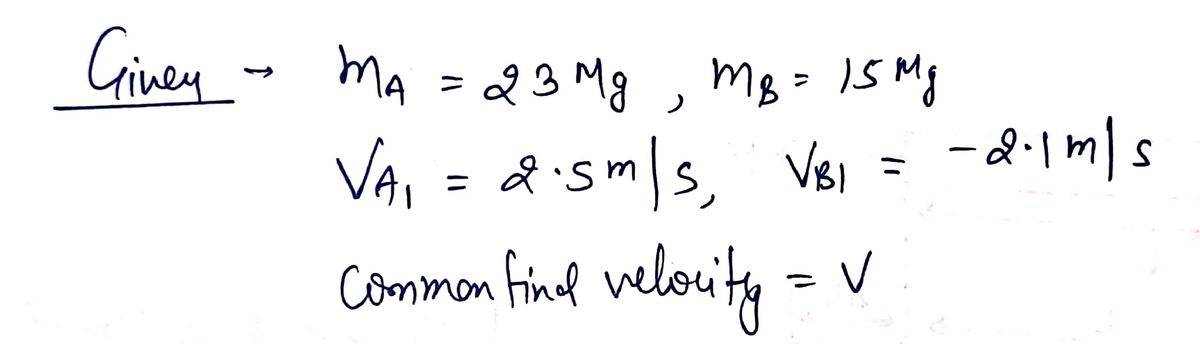 Given → mA = 23 Mg, mB = 15 Mg
VA1 = 2.5 m/s, VB1 = -2.1 m/s
Common final velocity = V